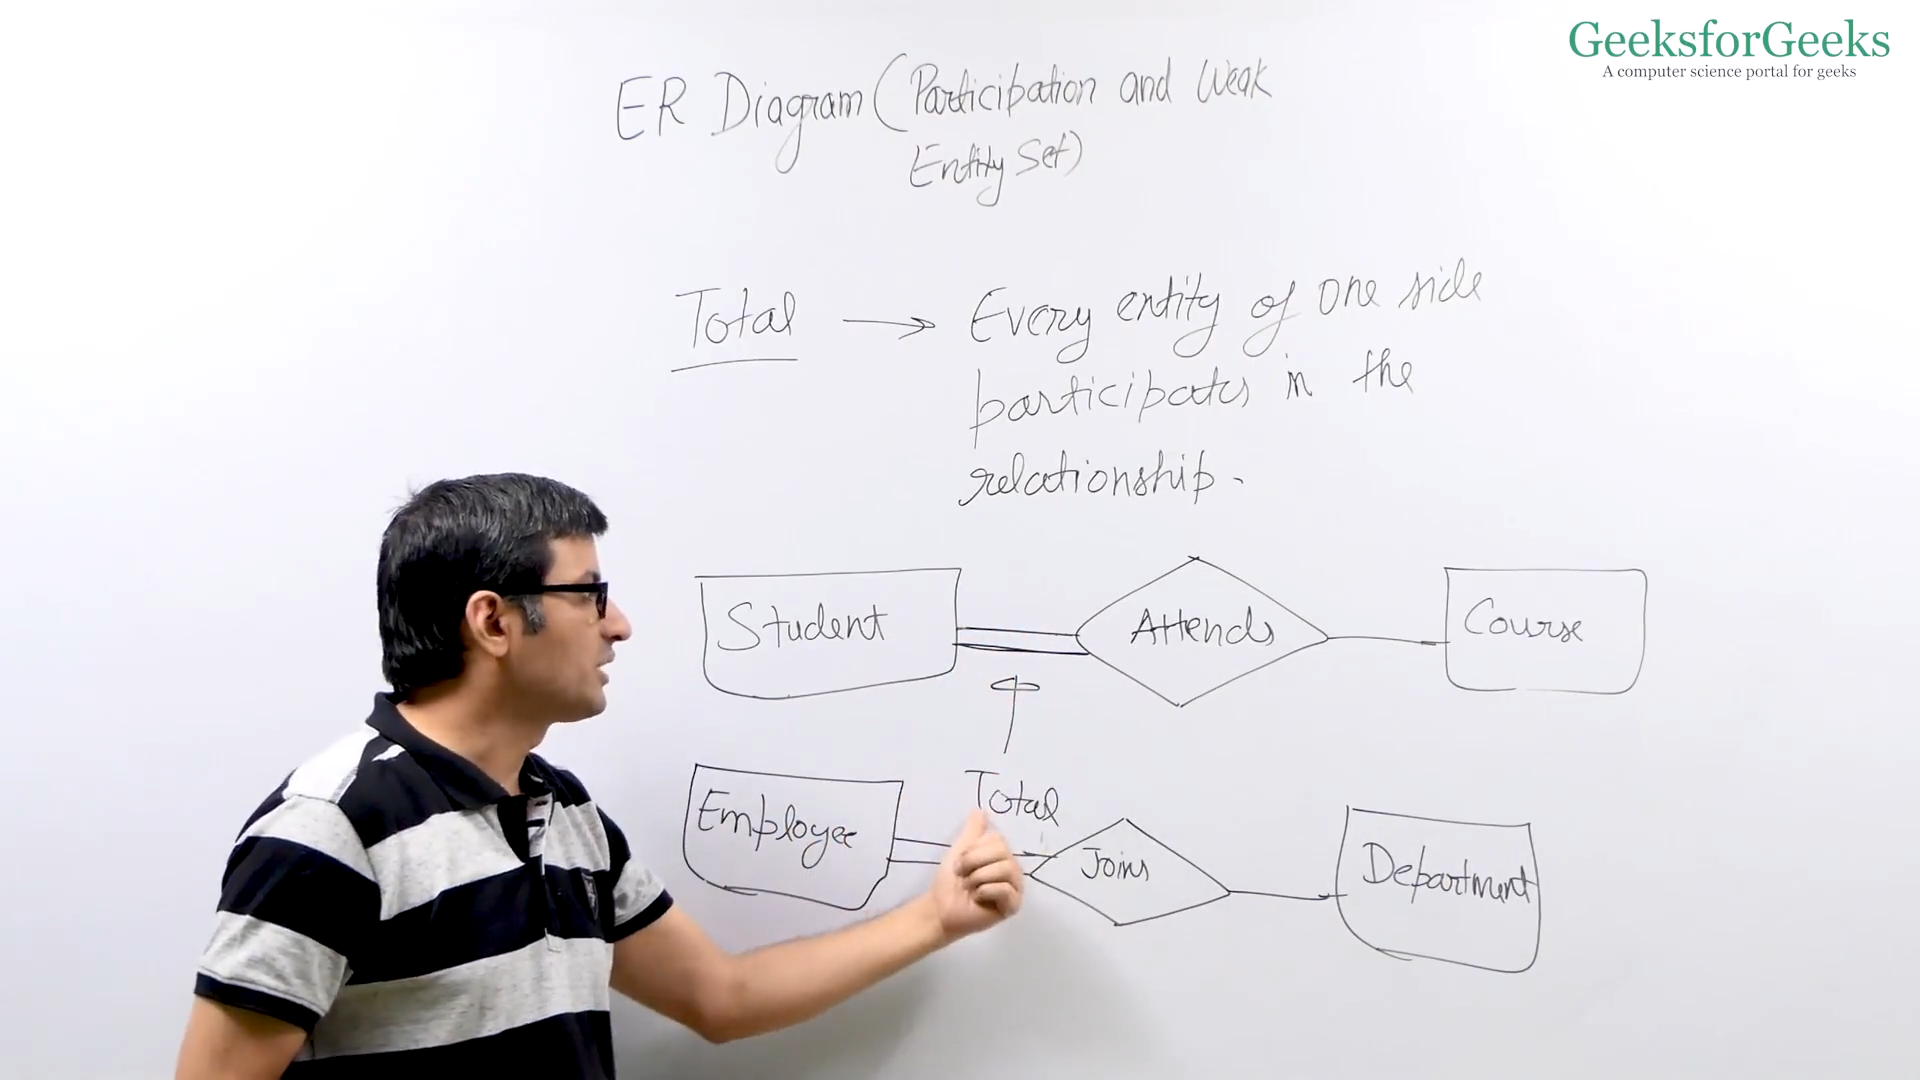 GeeksforGeeks
A computer science portal for geeks
ER Diagram (Participation and Weak
Entity Set)
Total → Every entity of one side
participates in the
relationship.
Student Attends Course
Total
Employee Joins Department